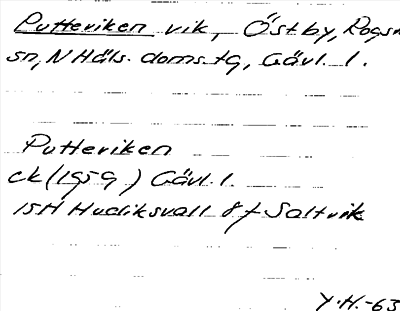 Putteriken vik, Östby, Rogsta
sn, N Häls. doms.tg, Gävl. l.
Putteriken
ek (1959) Gävl. l.
15H Hudiksvall 8f Saltvik
Y.H.-63